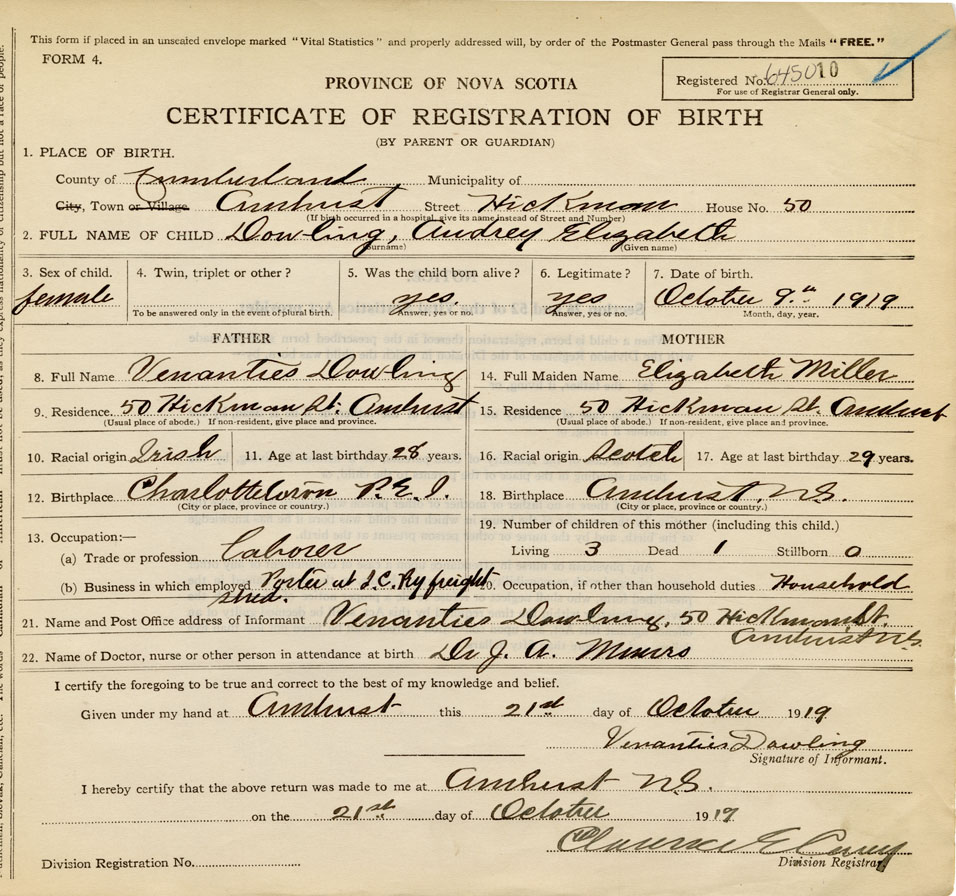 This form if placed in an unsealed envelope marked "Vital Statistics" and properly addressed will, by order of the Postmaster General pass through the Mails "FREE."
FORM 4.
Registered No. 645010
For use of Registrar General only.
PROVINCE OF NOVA SCOTIA
CERTIFICATE OF REGISTRATION OF BIRTH
(BY PARENT OR GUARDIAN)
1. PLACE OF BIRTH.
County of Cumberland, Municipality of
City, Town or Village Amherst Street Hickman House No. 50
(If birth occurred in a hospital, give its name instead of Street and Number)
2. FULL NAME OF CHILD Dowling, Audrey Elizabeth
(Surname) (Given name)
3. Sex of child. 4. Twin, triplet or other? 5. Was the child born alive? 6. Legitimate? 7. Date of birth.
female yes. yes October 9.th 1919
To be answered only in the event of plural birth. Answer, yes or no. Answer, yes or no. Month, day, year.
FATHER MOTHER
8. Full Name Venanties Dowling 14. Full Maiden Name Elizabeth Miller
9. Residence. 50 Hickman St. Amherst 15. Residence 50 Hickman St. Amherst
(Usual place of abode.) If non-resident, give place and province. (Usual place of abode.) If non-resident, give place and province.
10. Racial origin Irish 11. Age at last birthday 28 years. 16. Racial origin Scotch 17. Age at last birthday 29 years.
12. Birthplace Charlottetown P.E.I. 18. Birthplace Amherst. N.S.
(City or place, province or country.) (City or place, province or country.)
19. Number of children of this mother (including this child.)
13. Occupation:—
(a) Trade or profession Laborer Living 3 Dead 1 Stillborn 0
(b) Business in which employed Porter at I.C. Ry freight 20. Occupation, if other than household duties Household
shed.
21. Name and Post Office address of Informant Venanties Dowling, 50 Hickman St.
Amherst N.S.
22. Name of Doctor, nurse or other person in attendance at birth Dr J. A.
I certify the foregoing to be true and correct to the best of my knowledge and belief.
Given under my hand at Amherst this 21st day of October 1919
Venanties Dowling
Signature of Informant.
I hereby certify that the above return was made to me at Amherst N.S.
on the 21st day of October 1919
Clarence E
Division Registrar.
Division Registration No.